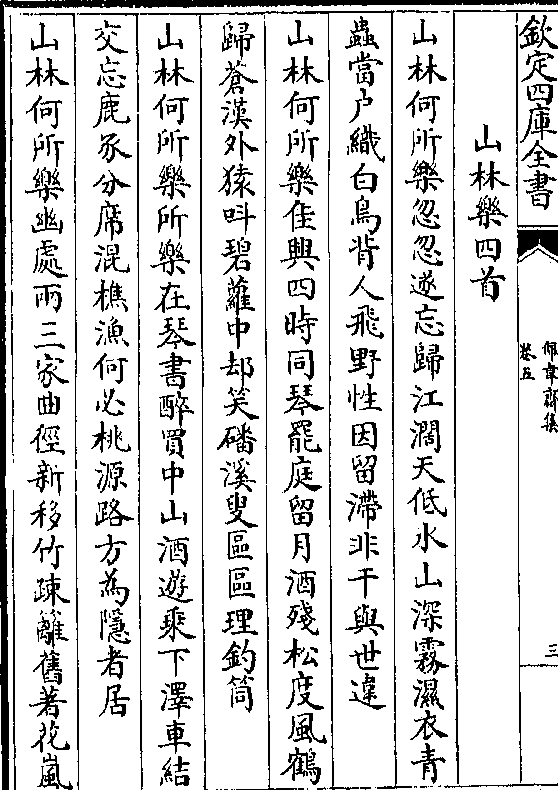 欽定四庫全書
佩韋齋集
卷五
三
山林樂四首
山林何所樂忽忽遂忘歸江濶天低水山深霧濕衣青
蟲當户織白鳥背人飛野性因留滯非干與世違
山林何所樂佳興四時同琴罷庭留月酒殘松度風鶴
歸蒼漢外猿呌碧蘿中却笑磻溪叟區區理釣筒
山林何所樂所樂在琴書醉買中山酒遊乘下澤車結
交忘鹿豕分席混樵漁何必桃源路方為隱者居
山林何所樂幽處兩三家曲徑新移竹疎籬舊著花嵐